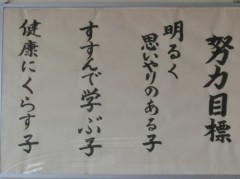 努力目標
明るく
思いやりのある子
すすんで学ぶ子
健康にくらす子